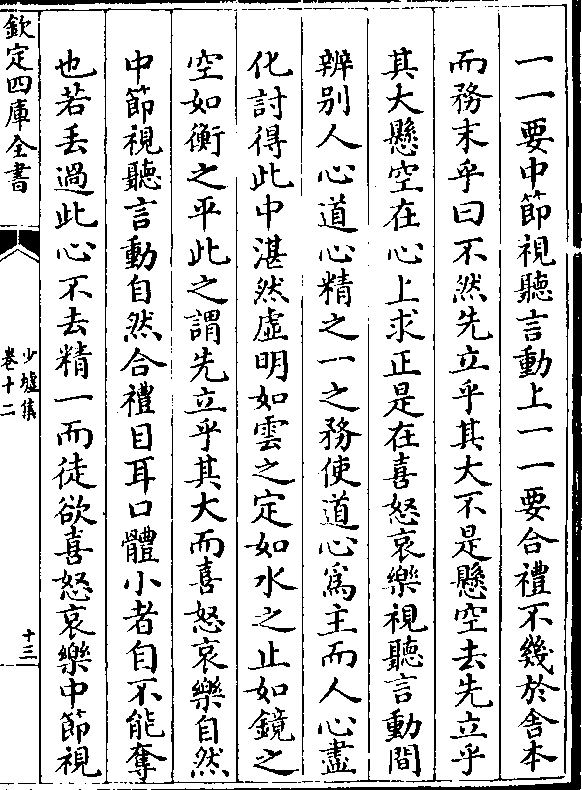 一一要中節視聽言動上一一要合禮不幾於舍本
而務末乎曰不然先立乎其大不是懸空去先立乎
其大懸空在心上求正是在喜怒哀樂視聽言動間
辨别人心道心精之一之務使道心爲主而人心盡
化討得此中湛然虛明如雲之定如水之止如鏡之
空如衡之平此之謂先立乎其大而喜怒哀樂自然
中節視聽言動自然合禮目耳口體小者自不能奪
也若丟過此心不去精一而徒欲喜怒哀樂中節視
欽定四庫全書
少墟集
卷十二
十三